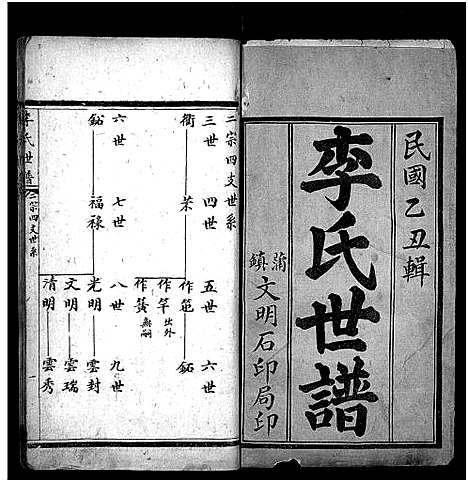 民國乙丑輯
李氏世譜
蒲鎮文明石印局印
二宗四支世系
三世 四世 五世 六世
衢 榮 作範 鉐
作竿 出外
作簧 無嗣
六世 七世 八世 九世
鉐 福祿 光明 雲封
文明 雲瑞
清明 雲秀
李氏世譜 二宗四支世系 一